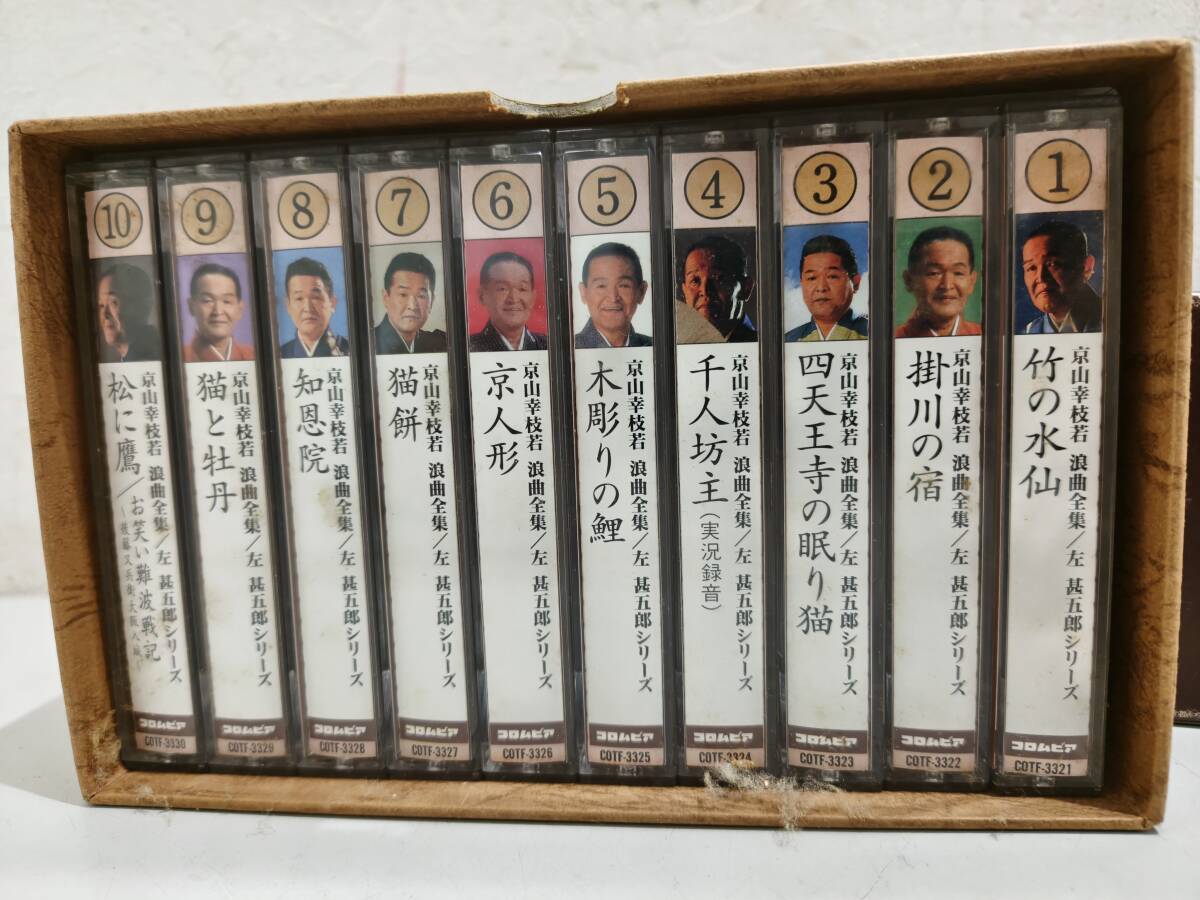 1
京山幸枝若 浪曲全集/左 甚五郎シリーズ
竹の水仙
コロムビア
COTF-3321
2
京山幸枝若 浪曲全集/左 甚五郎シリーズ
掛川の宿
コロムビア
COTF-3322
3
京山幸枝若 浪曲全集/左 甚五郎シリーズ
四天王寺の眠り猫
コロムビア
COTF-3323
4
京山幸枝若 浪曲全集/左 甚五郎シリーズ
千人坊主(実況録音)
コロムビア
COTF-3324
5
京山幸枝若 浪曲全集/左 甚五郎シリーズ
木彫りの鯉
コロムビア
COTF-3325
6
京山幸枝若 浪曲全集/左 甚五郎シリーズ
京人形
コロムビア
COTF-3326
7
京山幸枝若 浪曲全集/左 甚五郎シリーズ
猫餅
コロムビア
COTF-3327
8
京山幸枝若 浪曲全集/左 甚五郎シリーズ
知恩院
コロムビア
COTF-3328
9
京山幸枝若 浪曲全集/左 甚五郎シリーズ
猫と牡丹
コロムビア
COTF-3329
10
京山幸枝若 浪曲全集/左 甚五郎シリーズ
松に鷹/お笑い難波戦記
~後藤又兵衛大阪入城~
コロムビア
COTF-3330